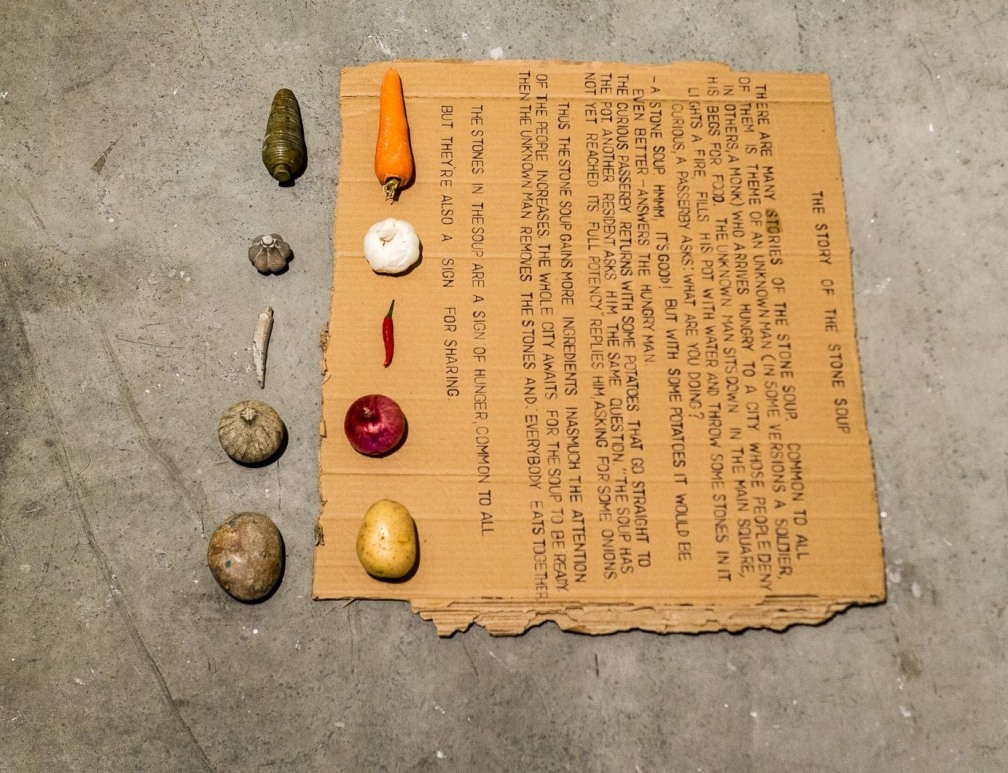 THE STORY OF THE STONE SOUP
THERE ARE MANY STORIES OF THE STONE SOUP. COMMON TO ALL
OF THEM IS THEME OF AN UNKNOWN MAN (IN SOME VERSIONS A SOLDIER,
IN OTHERS, A MONK) WHO ARRIVES HUNGRY TO A CITY WHOSE PEOPLE DENY
HIS BEGS FOR FOOD. THE UNKNOWN MAN SITS DOWN IN THE MAIN SQUARE,
LIGHTS A FIRE, FILLS HIS POT WITH WATER AND THROW SOME STONES IN IT
CURIOUS, A PASSERBY ASKS: WHAT ARE YOU DOING?
- A STONE SOUP. HMMM IT'S GOOD! BUT WITH SOME POTATOES IT WOULD BE
EVEN BETTER - ANSWERS THE HUNGRY MAN.
THE CURIOUS PASSERBY RETURNS WITH SOME POTATOES THAT GO STRAIGHT TO
THE POT. ANOTHER RESIDENT ASKS HIM THE SAME QUESTION, "THE SOUP HAS
NOT YET REACHED ITS FULL POTENCY" REPLIES HIM, ASKING FOR SOME ONIONS.
THUS THE STONE SOUP GAINS MORE INGREDIENTS INASMUCH THE ATTENTION
OF THE PEOPLE INCREASES. THE WHOLE CITY AWAITS FOR THE SOUP TO BE READY
THEN THE UNKNOWN MAN REMOVES THE STONES AND. EVERYBODY EATS TOGETHER
THE STONES IN THE SOUP ARE A SIGN OF HUNGER, COMMON TO ALL
BUT THEY'RE ALSO A SIGN FOR SHARING.